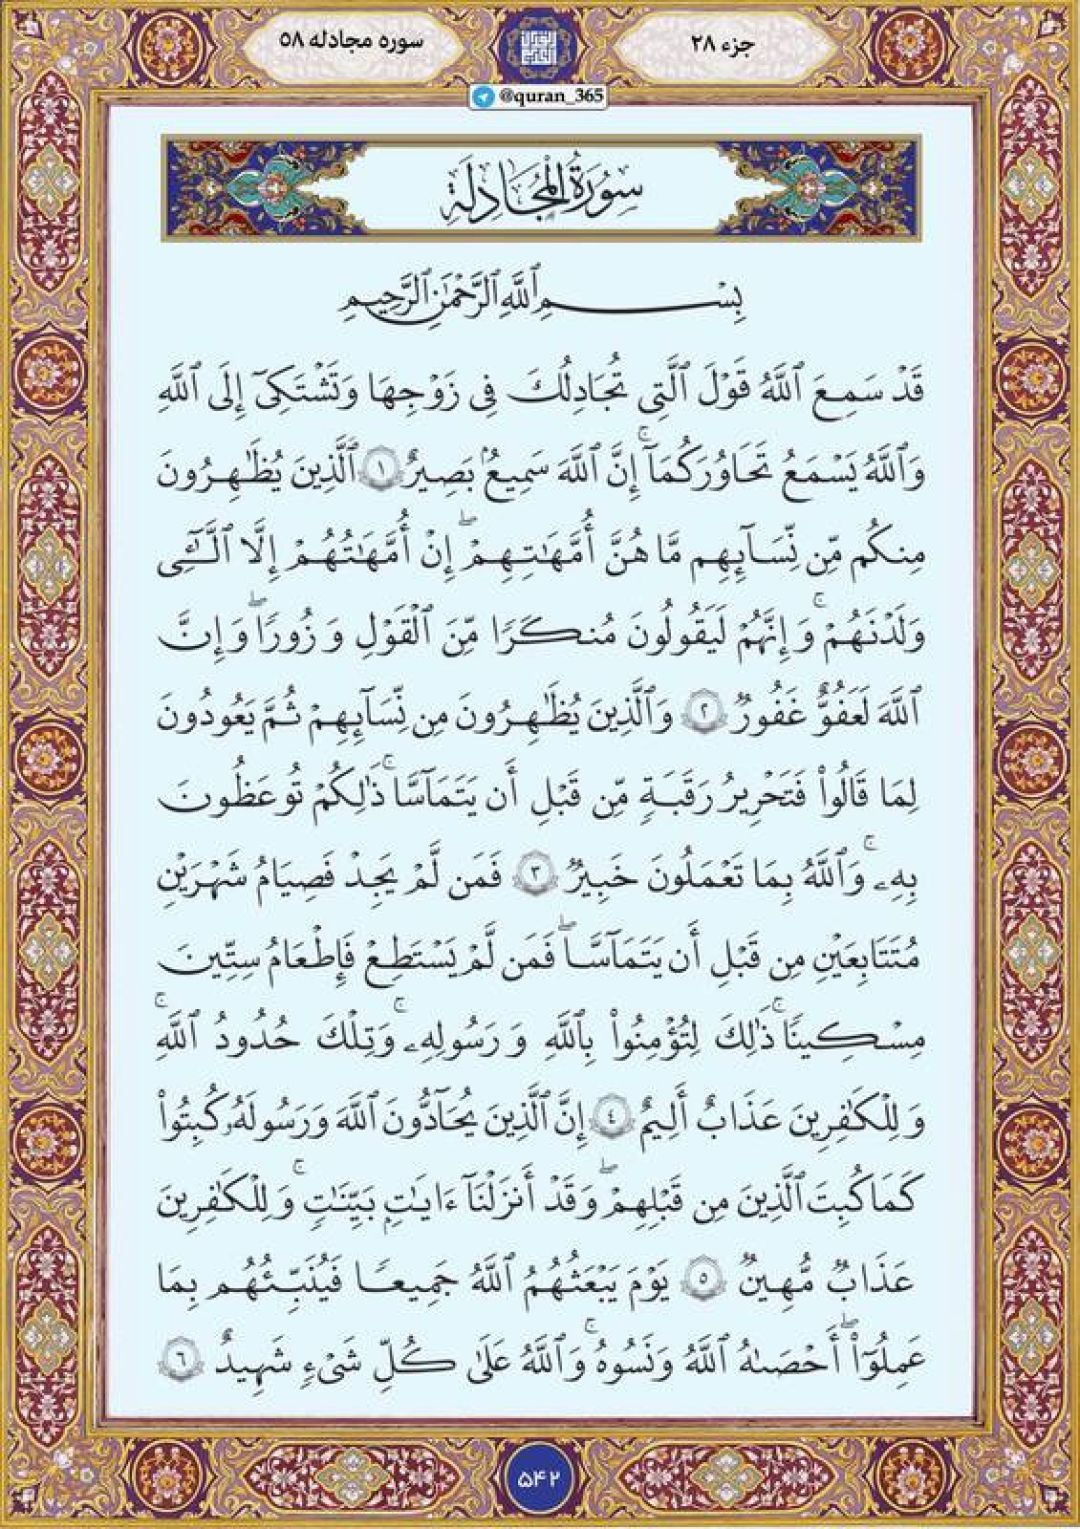 جزء ۲۸
سوره مجادله ۵۸
@quran_365
سُورَةُ الْمُجَادِلَةِ
بِسْمِ ٱللَّهِ ٱلرَّحْمَٰنِ ٱلرَّحِيمِ
قَدْ سَمِعَ ٱللَّهُ قَوْلَ ٱلَّتِى تُجَادِلُكَ فِى زَوْجِهَا وَتَشْتَكِىٓ إِلَى ٱللَّهِ
وَٱللَّهُ يَسْمَعُ تَحَاوُرَكُمَآ ۚ إِنَّ ٱللَّهَ سَمِيعٌۢ بَصِيرٌ ١ ٱلَّذِينَ يُظَٰهِرُونَ
مِنكُم مِّن نِّسَآئِهِم مَّا هُنَّ أُمَّهَٰتِهِمْ ۖ إِنْ أُمَّهَٰتُهُمْ إِلَّا ٱلَّٰٓـِٔى
وَلَدْنَهُمْ ۚ وَإِنَّهُمْ لَيَقُولُونَ مُنكَرًا مِّنَ ٱلْقَوْلِ وَزُورًا ۖ وَإِنَّ
ٱللَّهَ لَعَفُوٌّ غَفُورٌ ٢ وَٱلَّذِينَ يُظَٰهِرُونَ مِن نِّسَآئِهِمْ ثُمَّ يَعُودُونَ
لِمَا قَالُوا۟ فَتَحْرِيرُ رَقَبَةٍ مِّن قَبْلِ أَن يَتَمَآسَّا ۚ ذَٰلِكُمْ تُوعَظُونَ
بِهِۦ ۚ وَٱللَّهُ بِمَا تَعْمَلُونَ خَبِيرٌ ٣ فَمَن لَّمْ يَجِدْ فَصِيَامُ شَهْرَيْنِ
مُتَتَابِعَيْنِ مِن قَبْلِ أَن يَتَمَآسَّا ۖ فَمَن لَّمْ يَسْتَطِعْ فَإِطْعَامُ سِتِّينَ
مِسْكِينًا ۚ ذَٰلِكَ لِتُؤْمِنُوا۟ بِٱللَّهِ وَرَسُولِهِۦ ۚ وَتِلْكَ حُدُودُ ٱللَّهِ ۗ
وَلِلْكَٰفِرِينَ عَذَابٌ أَلِيمٌ ٤ إِنَّ ٱلَّذِينَ يُحَآدُّونَ ٱللَّهَ وَرَسُولَهُۥ كُبِتُوا۟
كَمَا كُبِتَ ٱلَّذِينَ مِن قَبْلِهِمْ ۖ وَقَدْ أَنزَلْنَآ ءَايَٰتٍۭ بَيِّنَٰتٍ ۚ وَلِلْكَٰفِرِينَ
عَذَابٌ مُّهِينٌ ٥ يَوْمَ يَبْعَثُهُمُ ٱللَّهُ جَمِيعًا فَيُنَبِّئُهُم بِمَا
عَمِلُوٓا۟ ۖ أَحْصَىٰهُ ٱللَّهُ وَنَسُوهُ ۚ وَٱللَّهُ عَلَىٰ كُلِّ شَىْءٍ شَهِيدٌ ٦
۵۴۲